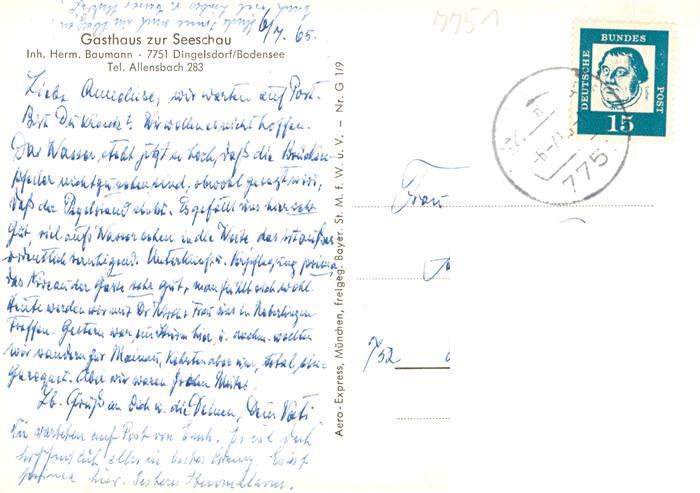 7751
6/7. 65.
Gasthaus zur Seeschau
Inh. Herm. Baumann · 7751 Dingelsdorf/Bodensee
Tel. Allensbach 283
Liebe Anneliese, wir warten auf Post.
Bist Du krank? Wir wollen es nicht hoffen.
Das Wasser steht jetzt so hoch, daß die Brücken-
pfeiler nicht zu sehen sind, obwohl gesagt wird,
daß der Pegelstand sinkt. Es gefällt uns hier sehr
gut, viel aufs Wasser sehen in die Weite das ist außer
ordentlich beruhigend. Unterkunft u. Verpflegung prima,
das Niveau der Gäste sehr gut, man fühlt sich wohl.
Heute werden wir mit Dr. Frau uns in Ueberlingen
treffen. Gestern war ein Sturm hier u. nachm. wollten
wir wandern zur Mainau, kehrten aber um, total ein-
geregnet. Aber wir waren frohen Mutes.
Lb. Gruß an Dich u. die Deinen, Dein Vati
Wir warteten auf Post von Euch. Es ist doch
hoffentlich alles in bester Ordnung. Es ist
prima hier.
Aero-Express, München, freigeg. Bayer. St. M. f. W. u. V. – Nr. G 1/9
DEUTSCHE BUNDES POST
15
775
Frau
752